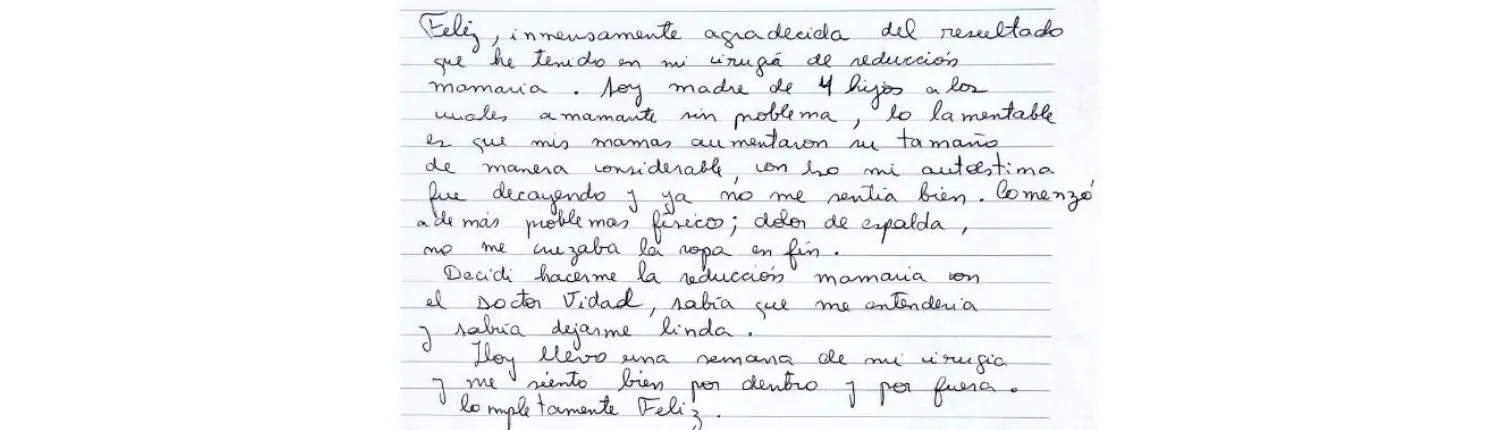 Feliz, inmensamente agradecida del resultado
que he tenido en mi cirugía de reducción
mamaria. Soy madre de 4 hijos a los
cuales amamante sin problema, lo lamentable
es que mis mamas aumentaron su tamaño
de manera considerable, con eso mi autoestima
fue decayendo y ya no me sentia bien. Comenzó
además problemas físicos; dolor de espalda,
no me cruzaba la ropa en fin.
Decidi hacerme la reducción mamaria con
el Doctor Vidal, sabía que me entenderia
y sabria dejarme linda.
Hoy llevo una semana de mi cirugia
y me siento bien por dentro y por fuera.
Completamente Feliz.